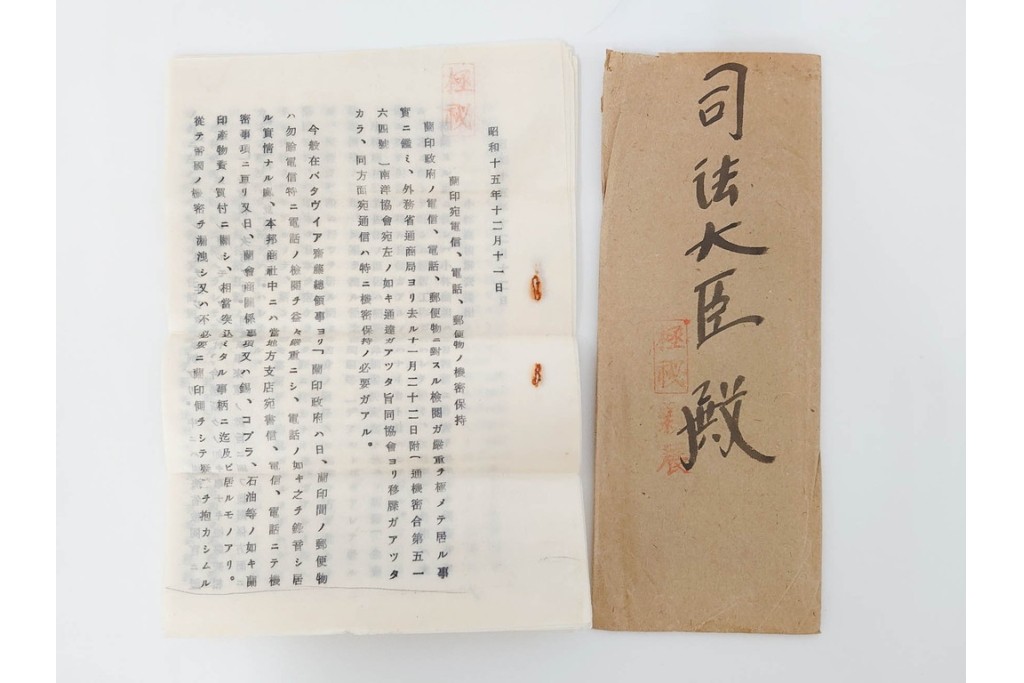 極秘
昭和十五年十二月十一日
蘭印宛電信、電話、郵便物ノ機密保持
蘭印政府ノ電信、電話、郵便物ニ對スル檢閲ガ嚴重ヲ極メテ居ル事
實ニ鑑ミ、外務省通商局ヨリ去ル十一月二十二日附(通機密合第五一
六四號)南洋協會宛左ノ如キ通達ガアツタ旨同協會ヨリ移牒ガアツタ
カラ、同方面宛通信ハ特ニ機密保持ノ必要ガアル。
今般在バタヴイア齋藤總領事ヨリ「蘭印政府ハ日、蘭印間ノ郵便物
ハ勿論電信特ニ電話ノ檢閲ヲ益々嚴重ニシ、電話ノ如キ之ヲ錄音シ居
ル實情ナル處、本邦商社中ニハ當地方支店宛書信、電信、電話ニテ機
密事項ニ亘リ又日、蘭會商關係事項又ハ錫、コプラ、石油等ノ如キ蘭
印產物資ノ買付ニ關シ、相當突込ミタル事柄ニ迄及ビ居ルモノアリ。
從テ帝國ノ機密ヲ漏洩シ又ハ不必要ニ蘭印側ヲシテ ヲ抱カシムル
司法大臣殿
極秘